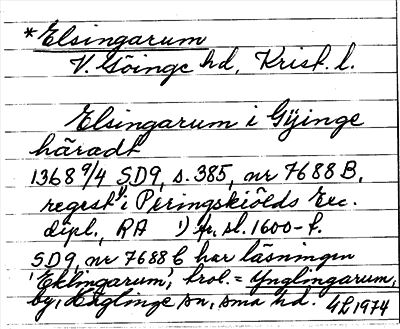 *Elsingarum
V. Göinge hd, Krist. l.
Elsingarum i Gÿinge
häradt
1368 9/4 SD9, s. 385, nr 7688 B,
regest i Peringskiölds Exc.
dipl., RA 1) fr. sl. 1600-t.
SD9 nr 7688 C har läsningen
'Eklingarum', trol. = Ynglingarum,
by, Häglinge sn, sma hd. GL 1974